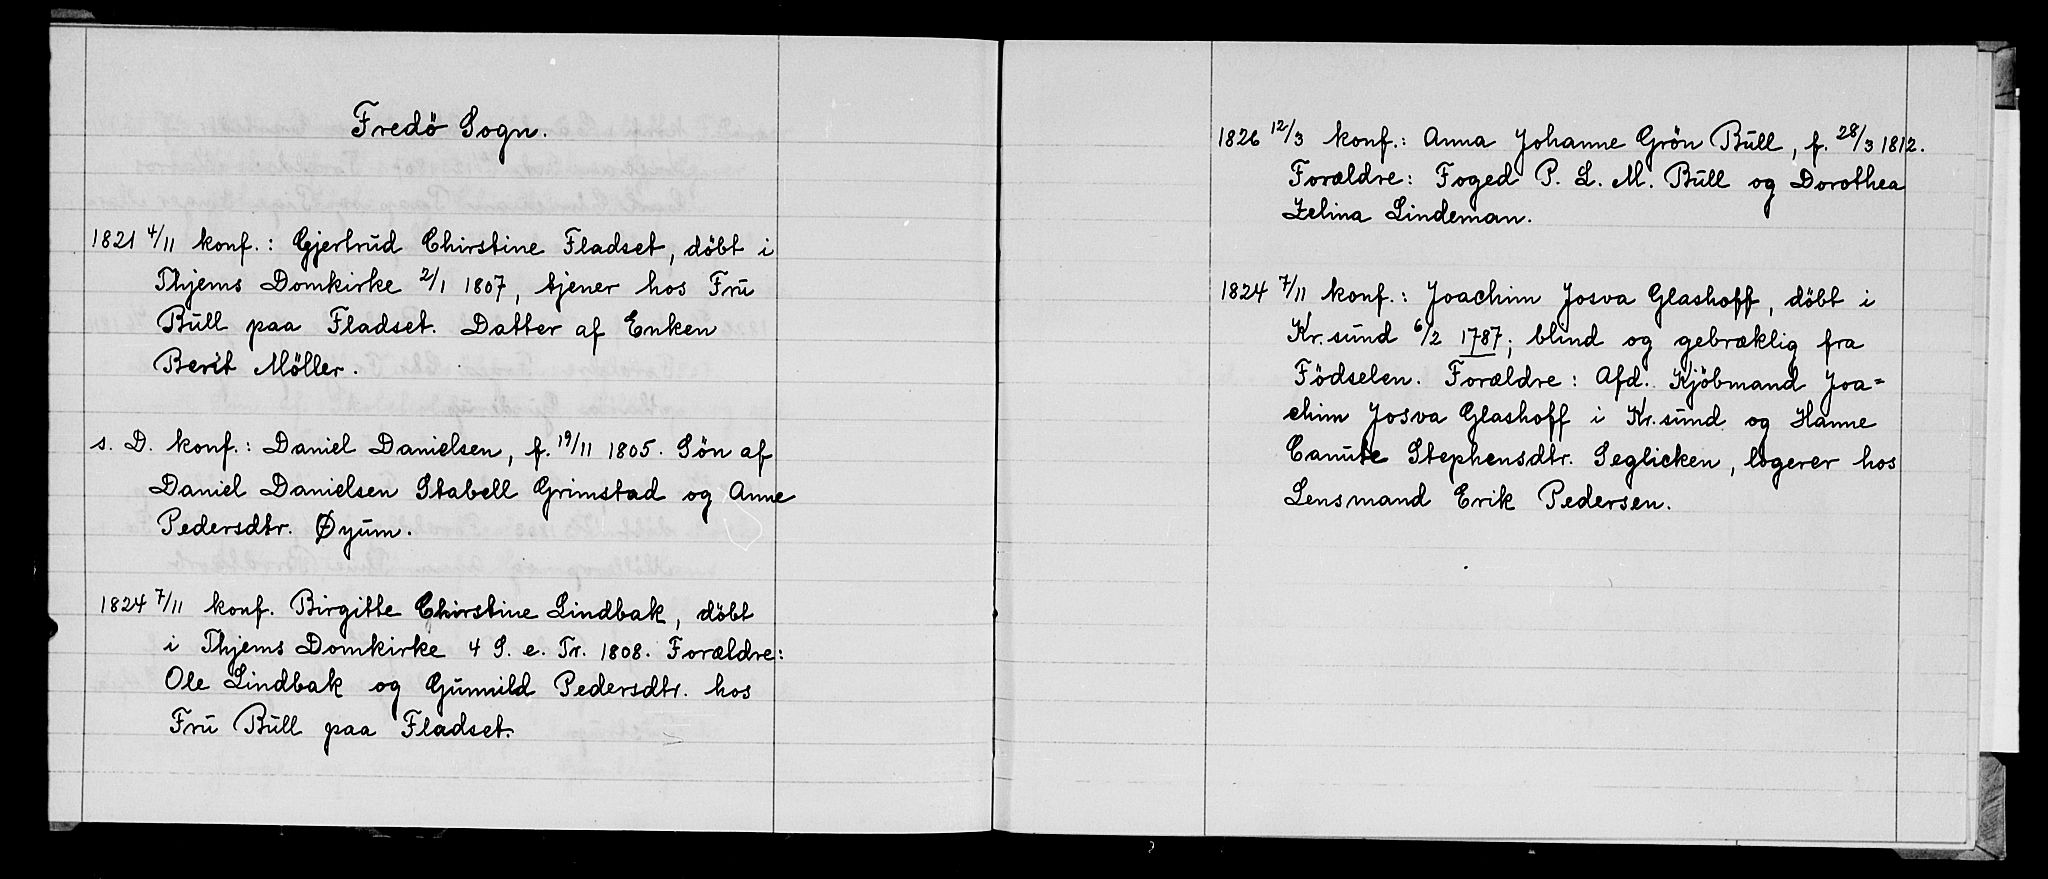 Fredö Sogn.
1821 4/11 konf.: Gjertrud Chirstine Fladset, döbt i
Thjems Domkirke 2/1 1807, tjener hos Fru
Bull paa Fladset. Datter af Enken
Berit Möller.
s. D. konf.: Daniel Danielsen, f. 19/11 1805. Sön af
Daniel Danielsen Stabell Grimstad og Anne
Pedersdtr. Øyum.
1824 7/11 konf. Birgitte Chirstine Lindbak, döbt
i Thjems Domkirke 4 S. e. Tr. 1808. Forældre:
Ole Lindbak og Gunnild Pedersdtr. hos
Fru Bull paa Fladset.
1826 12/3 konf.: Anna Johanne Grön Bull, f. 28/3 1812.
Forældre: Foged P. L. M. Bull og Dorothea
Zelina Lindeman.
1824 7/11 konf.: Joachim Josva Glashoff, döbt i
Kr.sund 6/2 1787; blind og gebræklig fra
Födselen. Forældre: Afd. Kjöbmand Joa=
chim Josva Glashoff i Kr.sund og Hanne
Canute Stephensdtr. Seglicken, logerer hos
Lensmand Erik Pedersen.